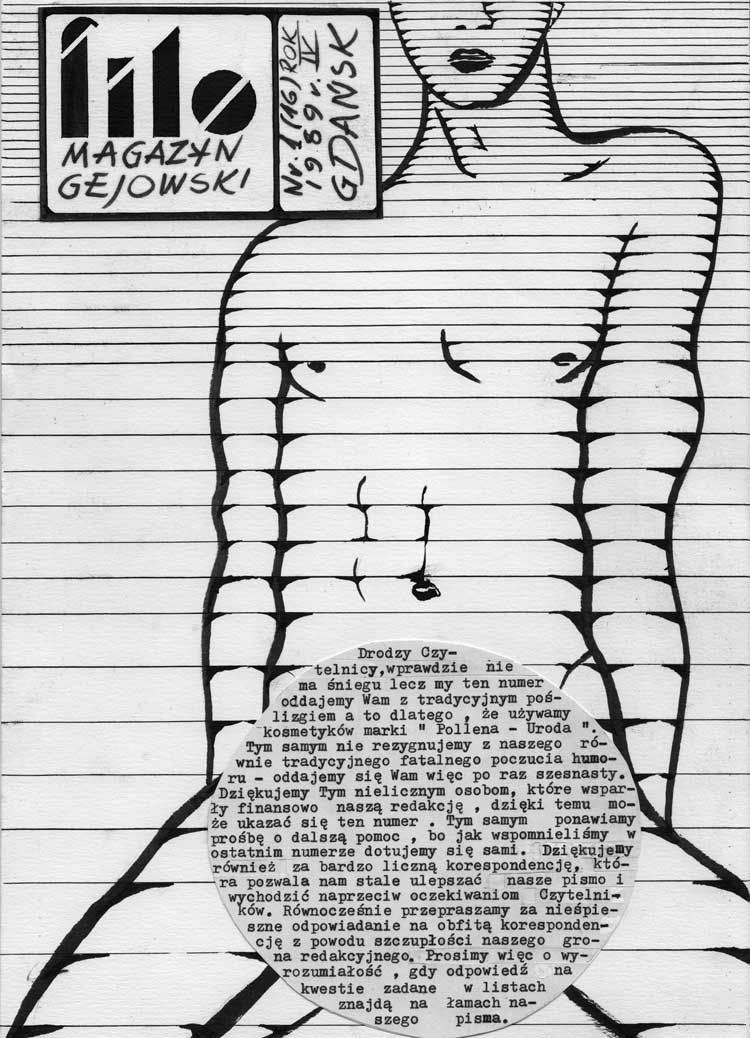 filo
MAGAZYN
GEJOWSKI
Nr. 1 (16) ROK IV
1989 r.
GDAŃSK
Drodzy Czy-
telnicy,wprawdzie nie
ma śniegu lecz my ten numer
oddajemy Wam z tradycyjnym poś-
lizgiem a to dlatego , że używamy
kosmetyków marki " Pollena - Uroda ".
Tym samym nie rezygnujemy z naszego ró-
wnie tradycyjnego fatalnego poczucia humo-
ru - oddajemy się Wam więc po raz szesnasty.
Dziękujemy Tym nielicznym osobom, które wspar-
ły finansowo naszą redakcję , dzięki temu mo-
że ukazać się ten numer . Tym samym ponawiamy
prośbę o dalszą pomoc , bo jak wspomnieliśmy w
ostatnim numerze dotujemy się sami. Dziękujemy
również za bardzo liczną korespondencję, któ-
ra pozwala nam stale ulepszać nasze pismo i
wychodzić naprzeciw oczekiwaniom Czytelni-
ków. Równocześnie przepraszamy za nieśpie-
szne odpowiadanie na obfitą koresponden-
cję z powodu szczupłości naszego gro-
na redakcyjnego. Prosimy więc o wy-
rozumiałość , gdy odpowiedź na
kwestie zadane w listach
znajdą na łamach na-
szego pisma.